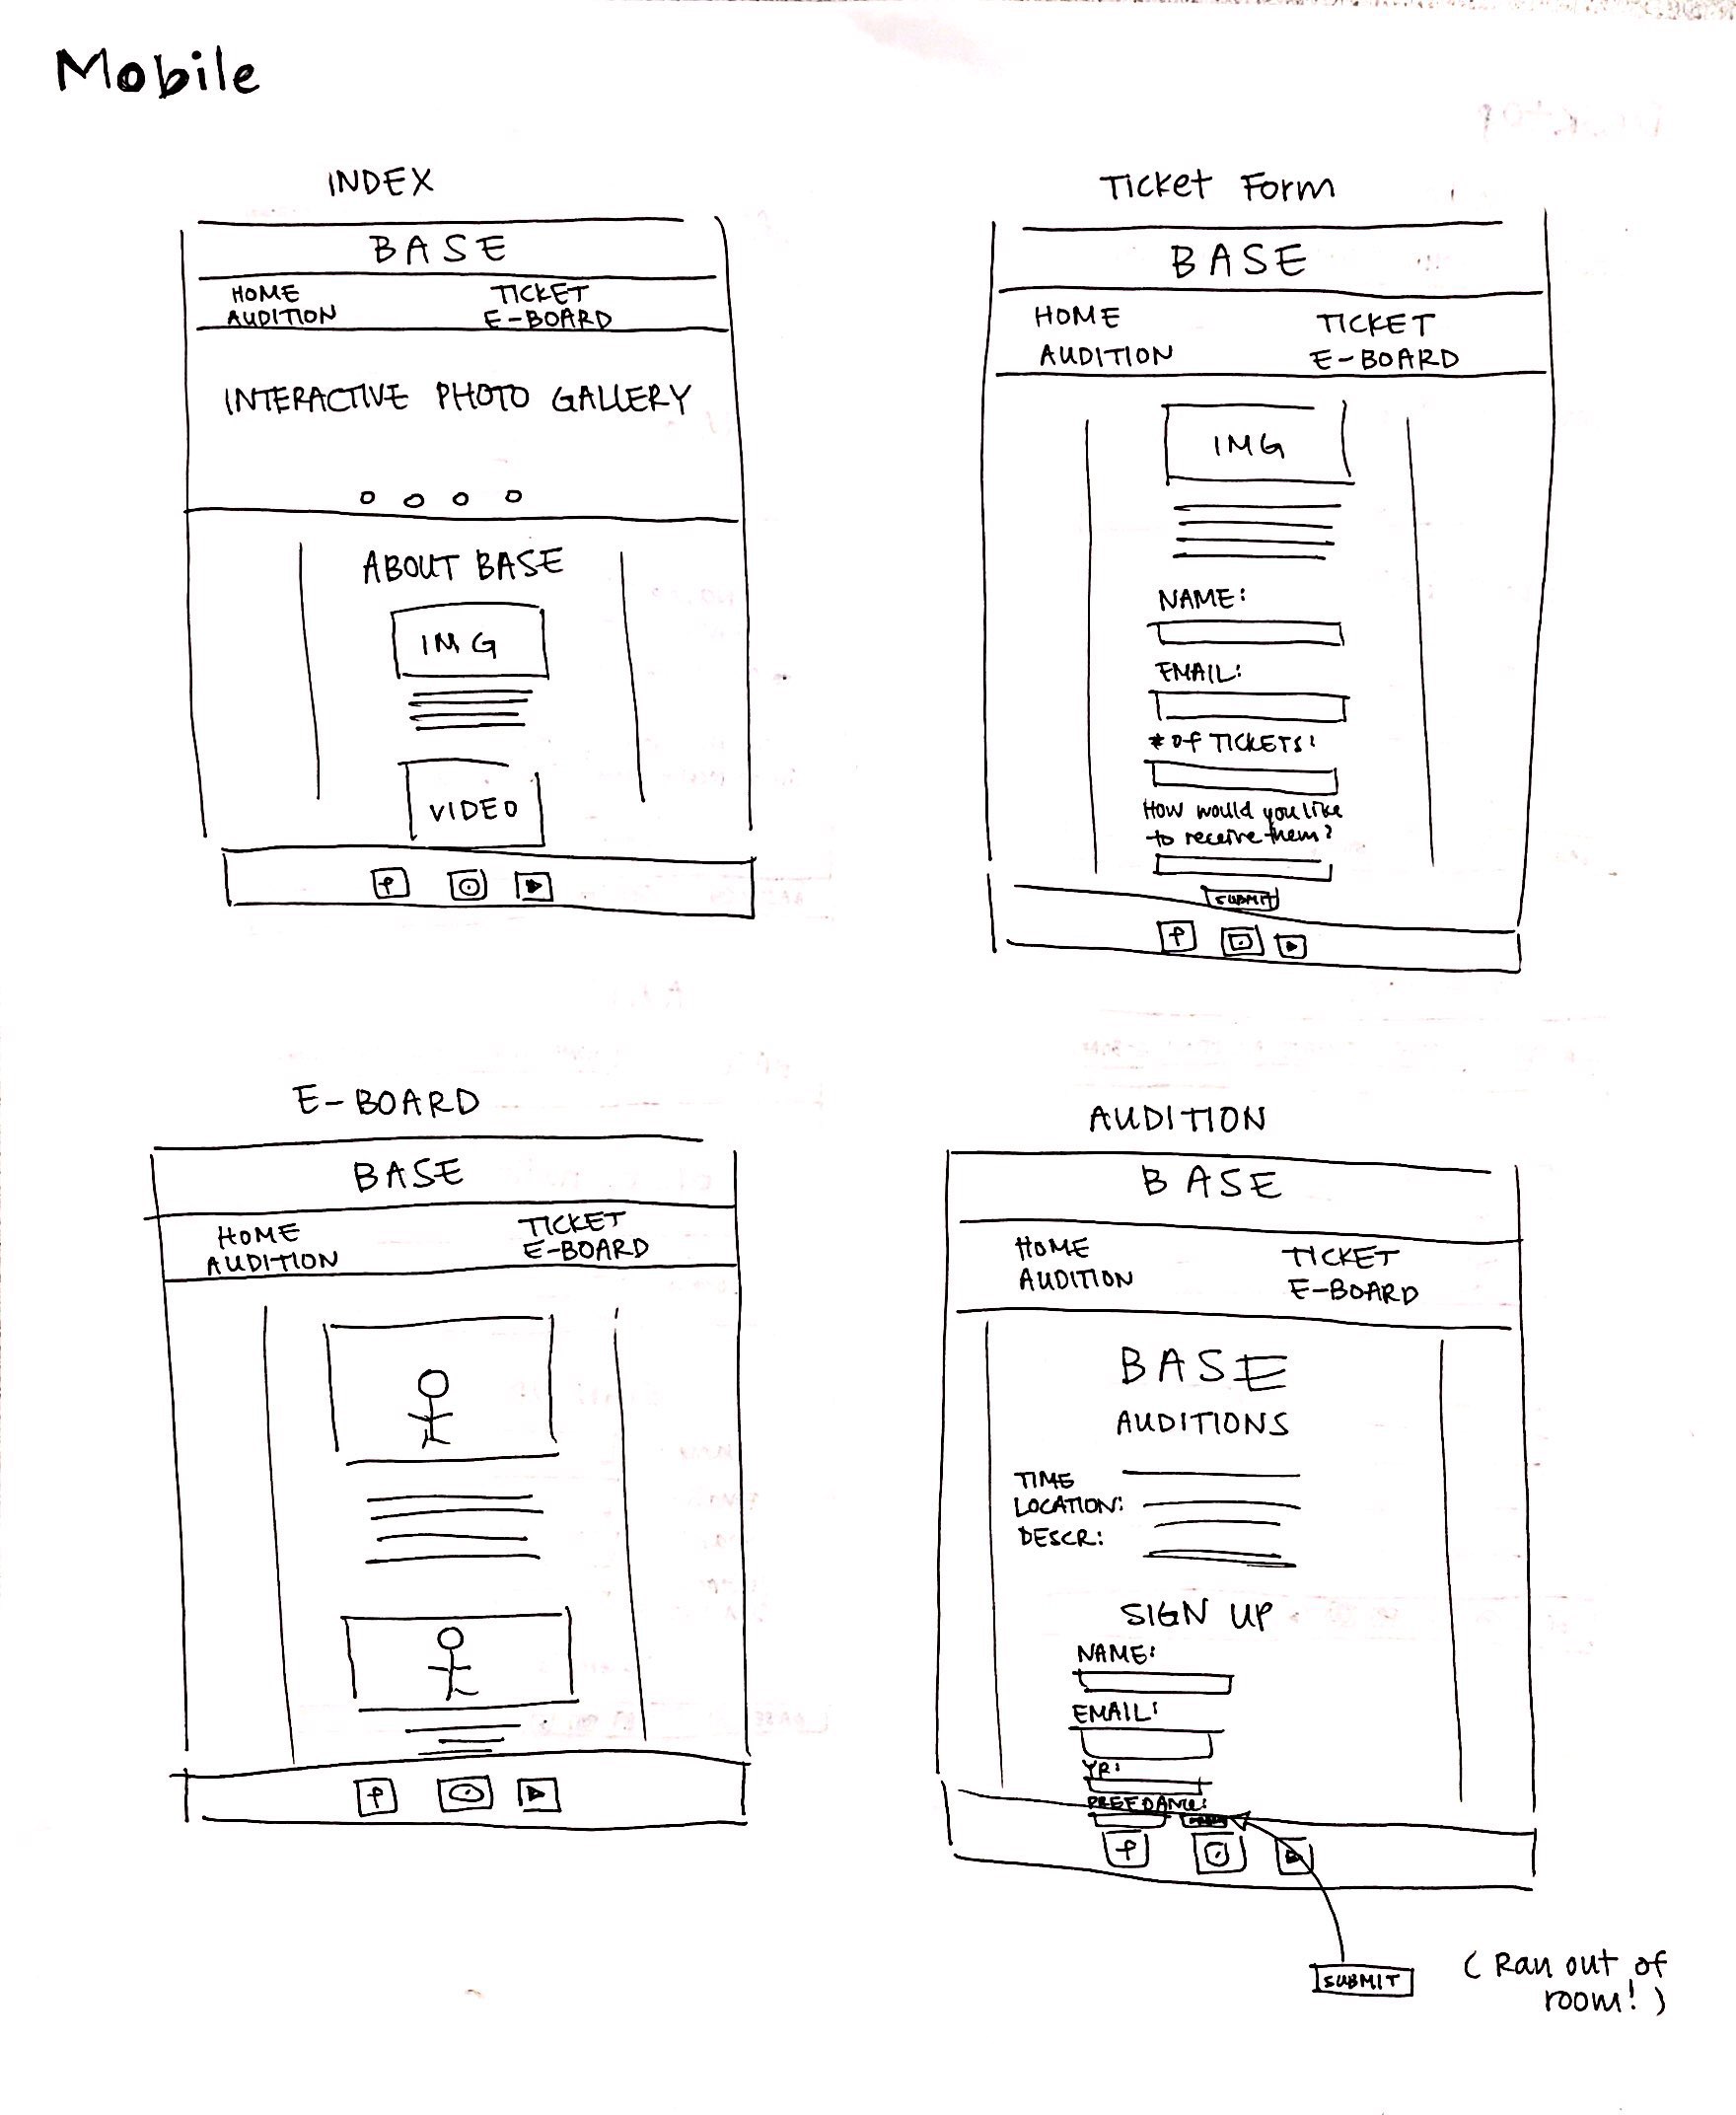 Mobile
INDEX
BASE
HOME TICKET
AUDITION E-BOARD
INTERACTIVE PHOTO GALLERY
ABOUT BASE
IMG
VIDEO
Ticket Form
BASE
HOME TICKET
AUDITION E-BOARD
IMG
NAME:
EMAIL:
# OF TICKETS:
How would you like
to receive them?
SUBMIT
E-BOARD
BASE
HOME TICKET
AUDITION E-BOARD
AUDITION
BASE
HOME TICKET
AUDITION E-BOARD
BASE
AUDITIONS
TIME
LOCATION:
DESCR:
SIGN UP
NAME:
EMAIL:
YR:
SUBMIT
(Ran out of
room!)